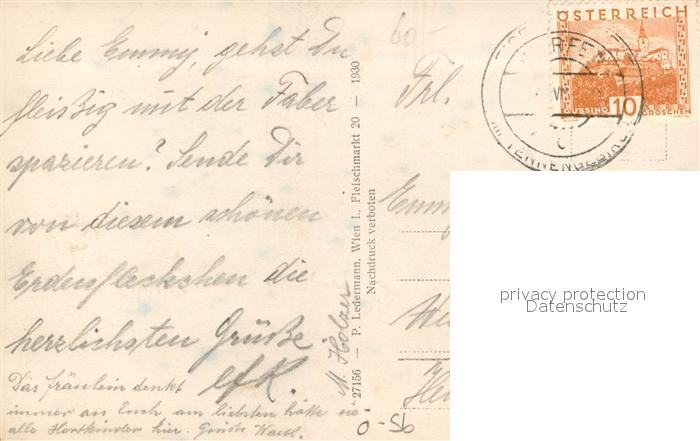 Liebe Emmy, gehst Du
fleißig mit der Faber
spazieren? Sende Dir
von diesem schönen
Erdenfleckchen die
herzlichsten Grüße.
Das fräulein denkt
immer an Euch am liebsten hätte sie
alle Hortkinder hier. Grüße
M. Holzer
27156 — P. Ledermann, Wien I., Fleischmarkt 20 — 1930
Nachdruck verboten
60-
ÖSTERREICH
GÜSSING 10 GROSCHEN
TENNENGEBIRGE
Frl.
Emmy
privacy protection
Datenschutz
0-56